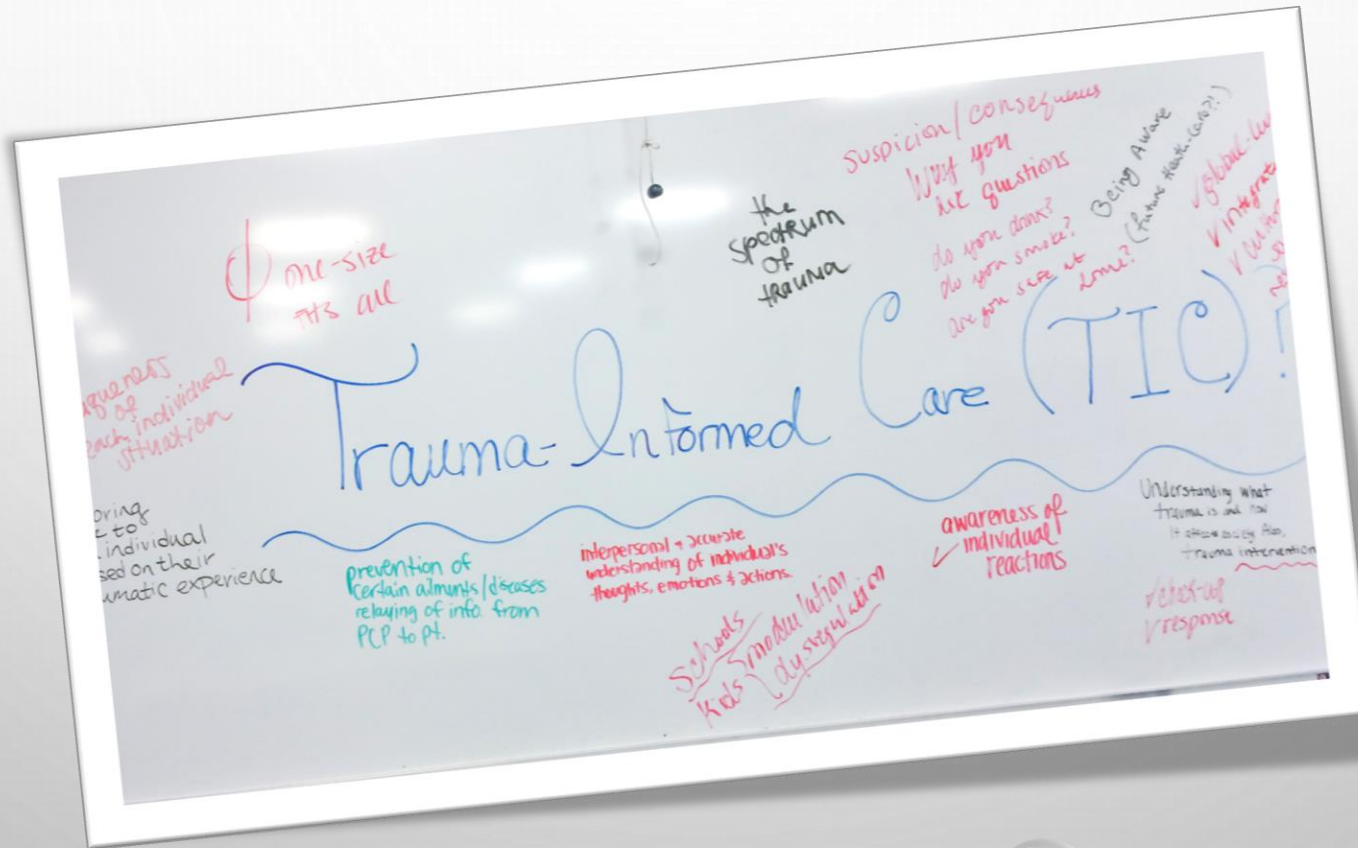 ɸ one-size
fits all
the
spectrum
of
trauma
suspicion/consequences
Way you
ask questions
do you drink?
do you smoke?
are you safe at
home?
Being Aware
(future Health-Care?!)
✓ global-
✓ integrat
✓
of
each individual
situation
Trauma-Informed Care (TIC)?
oring
to
individual
sed on their
umatic experience
prevention of
certain ailments/diseases
relaying of info. from
PCP to pt.
interpersonal + accurate
understanding of individual's
thoughts, emotions & actions.
Schools
Kids
modulation
dysregulation
awareness of
✓ individual
reactions
Understanding what
trauma is and how
it affects society. Also,
trauma intervention
✓ check-up
✓ response